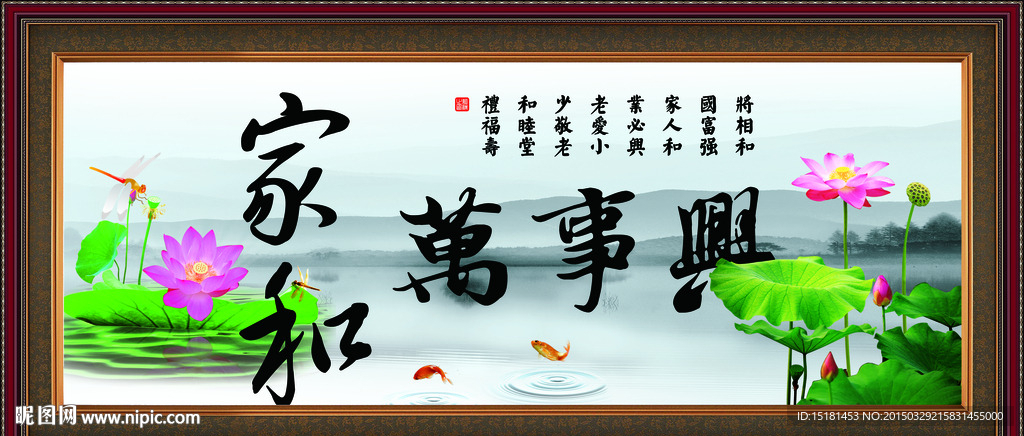 家和
萬事興
將相和
國富强
家人和
業必興
老愛小
少敬老
和睦堂
禮福壽
昵图网 www.nipic.com
ID:15181453 NO:20150329215831455000